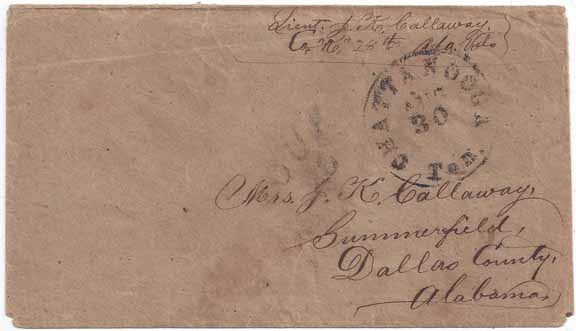 Lieut. J. K. Callaway.
Co. "K" 28th Ala. Vols
CHATTANOOGA
30
Ten.
DUE
Mrs. J. K. Callaway,
Summerfield,
Dallas County,
Alabama,